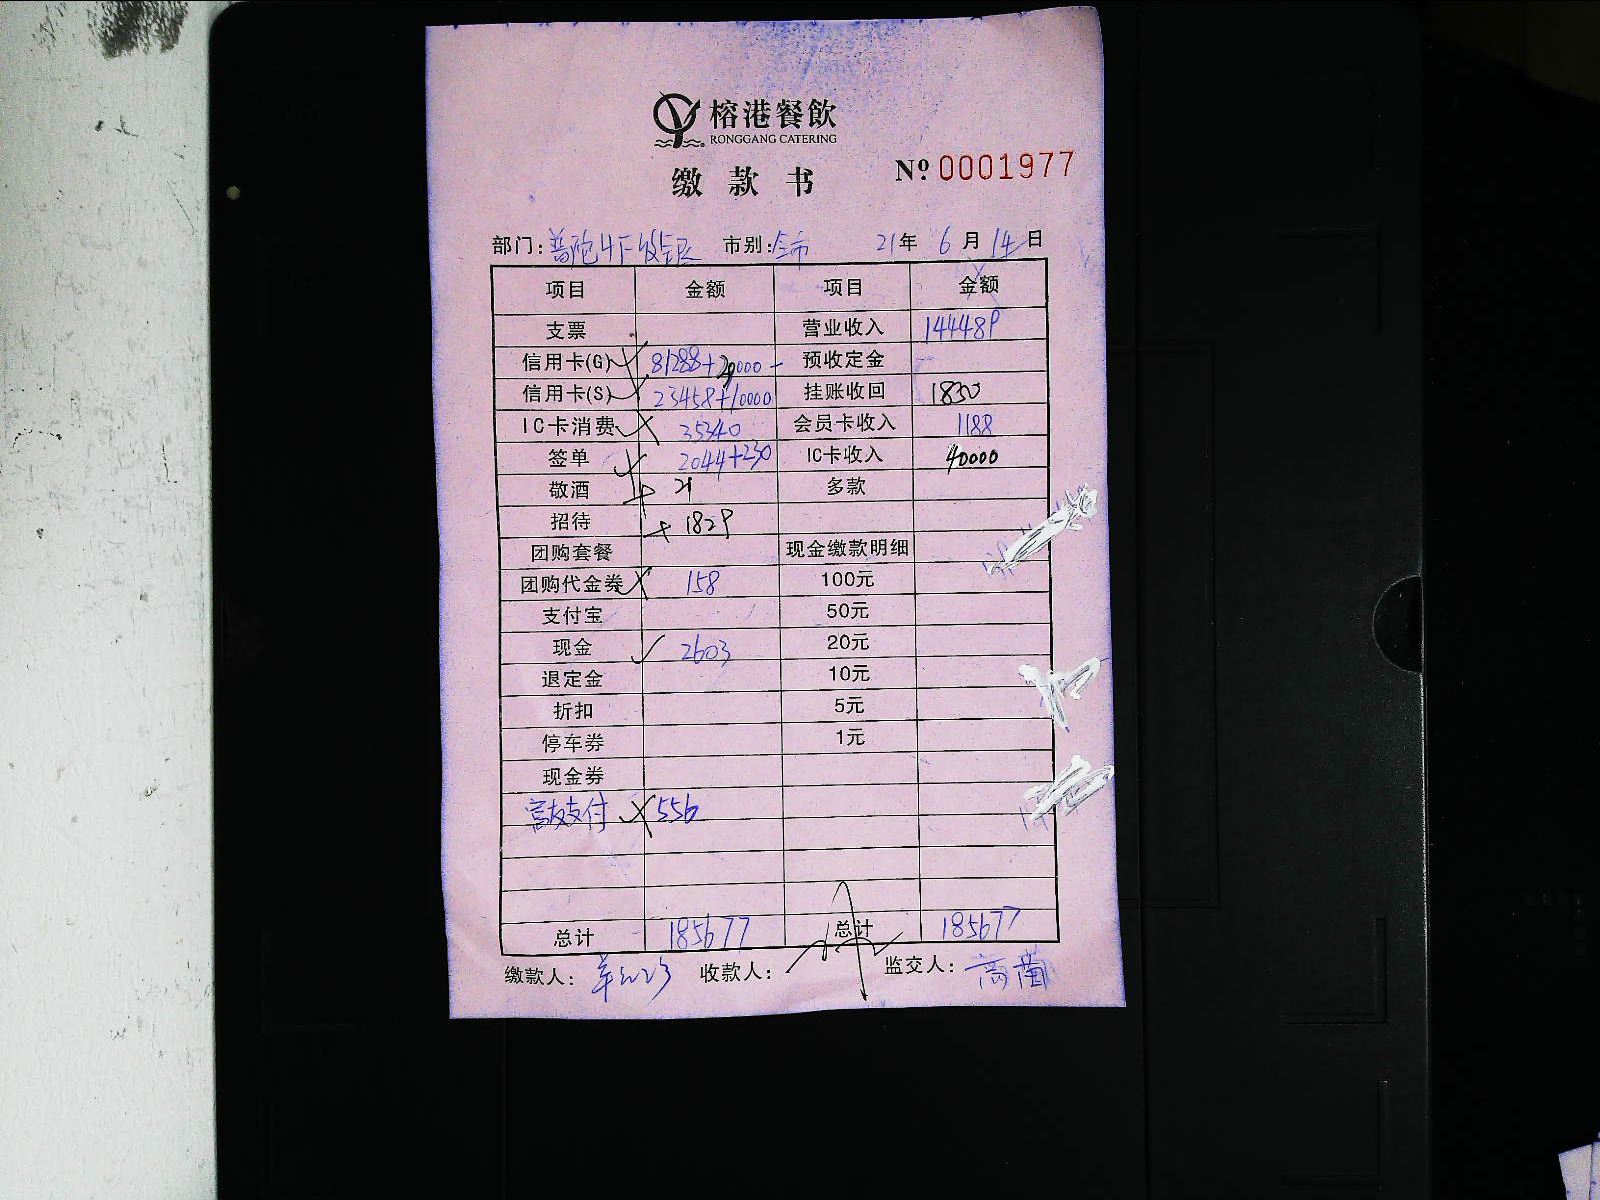 榕港餐飲
RONGGANG CATERING
缴款书 Nº 0001977
部门: 市别:全市 21年 6月 14日
项目 金额 项目 金额
支票 营业收入 144489
信用卡(G) 81288+30000 预收定金
信用卡(S) 23458+10000 挂账收回 1830
IC卡消费 35340 会员卡收入 1188
签单 2044+230 IC卡收入 40000
敬酒 21 多款
招待 1829
团购套餐 现金缴款明细
团购代金券 158 100元
支付宝 50元
现金 2603 20元
退定金 10元
折扣 5元
停车券 1元
现金券
富友支付 556
总计 185677 总计 185677
缴款人: 收款人: 监交人: